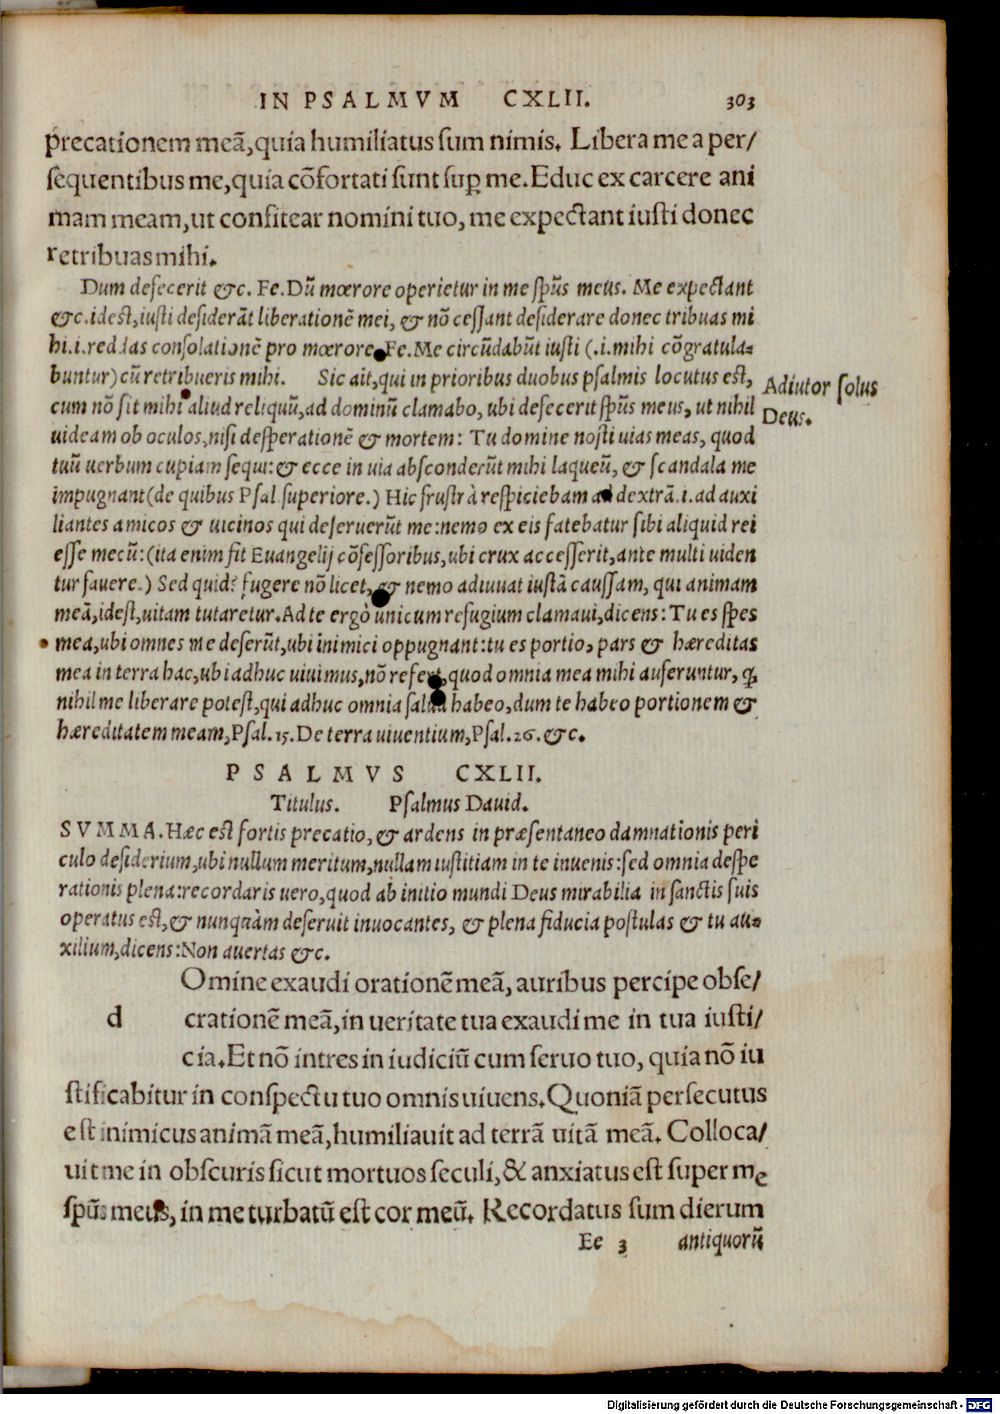 IN PSALMVM CXLII. 303
precationem meā,quia humiliatus sum nimis. Libera me a per/
sequentibus me,quia cōfortati sunt sup me.Educ ex carcere ani
mam meam,ut confitear nomini tuo, me expectant iusti donec
retribuas mihi.
Dum defecerit &c. Fe.Dū mœrore operietur in me spūs meus. Me expectant
&c.idest,iusti desiderāt liberationē mei, & nō cessant desiderare donec tribuas mi
hi.i.reddas consolationē pro mœrore. Fe.Me circūdabūt iusti (.i.mihi cōgratula=
buntur) cū retribueris mihi. Sic ait,qui in prioribus duobus psalmis locutus est,
Adiutor solus
Deus.
cum nō sit mihi aliud reliquū,ad dominū clamabo, ubi defecerit spūs meus, ut nihil
uideam ob oculos,nisi desperationē & mortem: Tu domine nosti uias meas, quod
tuū uerbum cupiam sequi:& ecce in uia absconderūt mihi laqueū, & scandala me
impugnant(de quibus Psal.superiore.) Hic frustrà respiciebam ad dextrā.i.ad auxi
liantes amicos & uicinos qui deseruerūt me:nemo ex eis fatebatur sibi aliquid rei
esse mecū:(ita enim fit Euangelij cōfessoribus,ubi crux accesserit,ante multi uiden
tur fauere.) Sed quid? fugere nō licet, & nemo adiuuat iustā caussam, qui animam
meā,idest,uitam tutaretur.Ad te ergò unicum refugium clamaui,dicens: Tu es spes
mea,ubi omnes me deserūt,ubi inimici oppugnant:tu es portio, pars & hæreditas
mea in terra hac,ubi adhuc uiuimus,nō refert,quod omnia mea mihi auferuntur, q̃
nihil me liberare potest,qui adhuc omnia salua habeo,dum te habeo portionem &
hæreditatem meam,Psal.15.De terra uiuentium,Psal.26.&c.
PSALMVS CXLII.
Titulus. Psalmus Dauid.
SVMMA.Hæc est fortis precatio, & ardens in præsentaneo damnationis peri
culo desiderium,ubi nullum meritum,nullam iustitiam in te inuenis:sed omnia despe
rationis plena:recordaris uero,quod ab initio mundi Deus mirabilia in sanctis suis
operatus est,& nunquàm deseruit inuocantes, & plena fiducia postulas & tu au=
xilium,dicens:Non auertas &c.
Omine exaudi orationē meā, auribus percipe obse/
d crationē meā,in ueritate tua exaudi me in tua iusti/
cia.Et nō intres in iudiciū cum seruo tuo, quia nō iu
stificabitur in conspectu tuo omnis uiuens.Quoniā persecutus
est inimicus animā meā,humiliauit ad terrā uitā meā. Colloca/
uit me in obscuris sicut mortuos seculi,& anxiatus est super me
spūs meus, in me turbatū est cor meū. Recordatus sum dierum
Ee 3 antiquorū
Digitalisierung gefördert durch die Deutsche Forschungsgemeinschaft - DFG